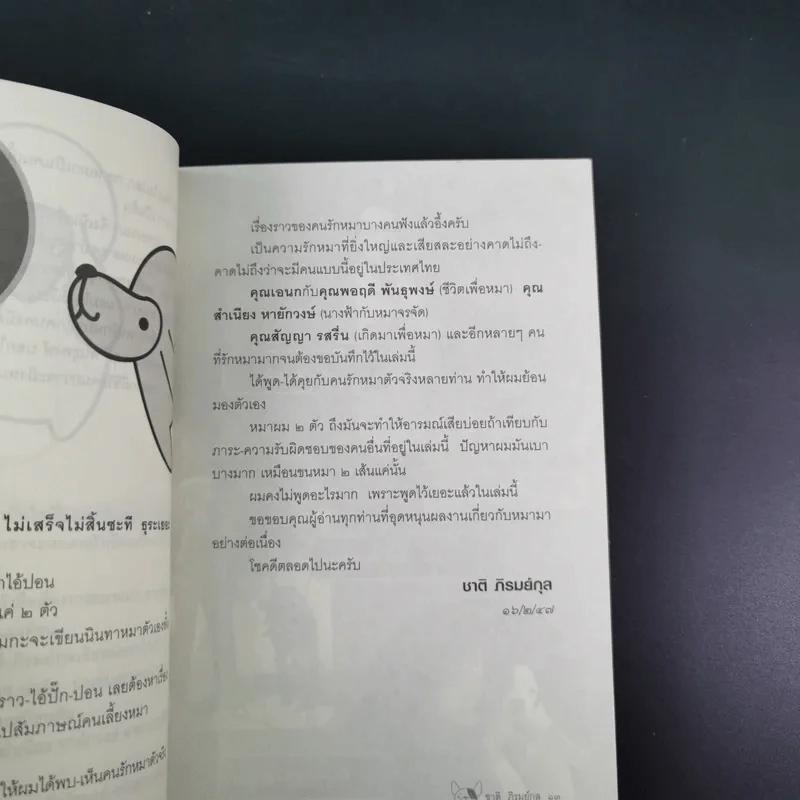 ไม่เสร็จไม่สิ้นซะที ธุระเยอะ
าไอ้ปอน
แค่ ๒ ตัว
มกะจะเขียนนินทาหมาตัวเองทั้ง
ราว-ไอ้ปั๊ก-ปอน เลยต้องหาเรื่อง
ไปสัมภาษณ์คนเลี้ยงหมา
ให้ผมได้พบ-เห็นคนรักหมาตัวจริง
เรื่องราวของคนรักหมาบางคนฟังแล้วอึ้งครับ
เป็นความรักหมาที่ยิ่งใหญ่และเสียสละอย่างคาดไม่ถึง-
คาดไม่ถึงว่าจะมีคนแบบนี้อยู่ในประเทศไทย
คุณเอนกกับคุณพอฤดี พันธุพงษ์ (ชีวิตเพื่อหมา) คุณ
สำเนียง หายักวงษ์ (นางฟ้ากับหมาจรจัด)
คุณสัญญา รสรื่น (เกิดมาเพื่อหมา) และอีกหลายๆ คน
ที่รักหมามากจนต้องขอบันทึกไว้ในเล่มนี้
ได้พูด-ได้คุยกับคนรักหมาตัวจริงหลายท่าน ทำให้ผมย้อน
มองตัวเอง
หมาผม ๒ ตัว ถึงมันจะทำให้อารมณ์เสียบ่อยถ้าเทียบกับ
ภาระ-ความรับผิดชอบของคนอื่นที่อยู่ในเล่มนี้ ปัญหาผมมันเบา
บางมาก เหมือนขนหมา ๒ เส้นแค่นั้น
ผมคงไม่พูดอะไรมาก เพราะพูดไว้เยอะแล้วในเล่มนี้
ขอขอบคุณผู้อ่านทุกท่านที่อุดหนุนผลงานเกี่ยวกับหมามา
อย่างต่อเนื่อง
โชคดีตลอดไปนะครับ
ชาติ ภิรมย์กุล
๑๖/๒/๔๗
ชาติ ภิรมย์กุล ๑๓